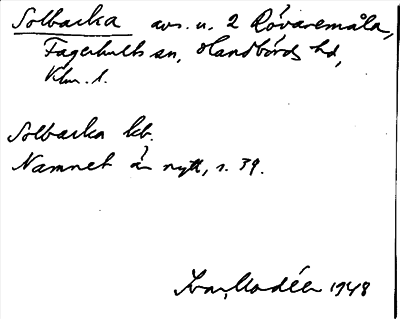 Solbacka avs. u. 2 Rövaremåla,
Fagerhults sn, Handbörds hd,
Klm. l.
Solbacka kb.
Namnet är nytt, s. 39.
Ivar Modéer 1948